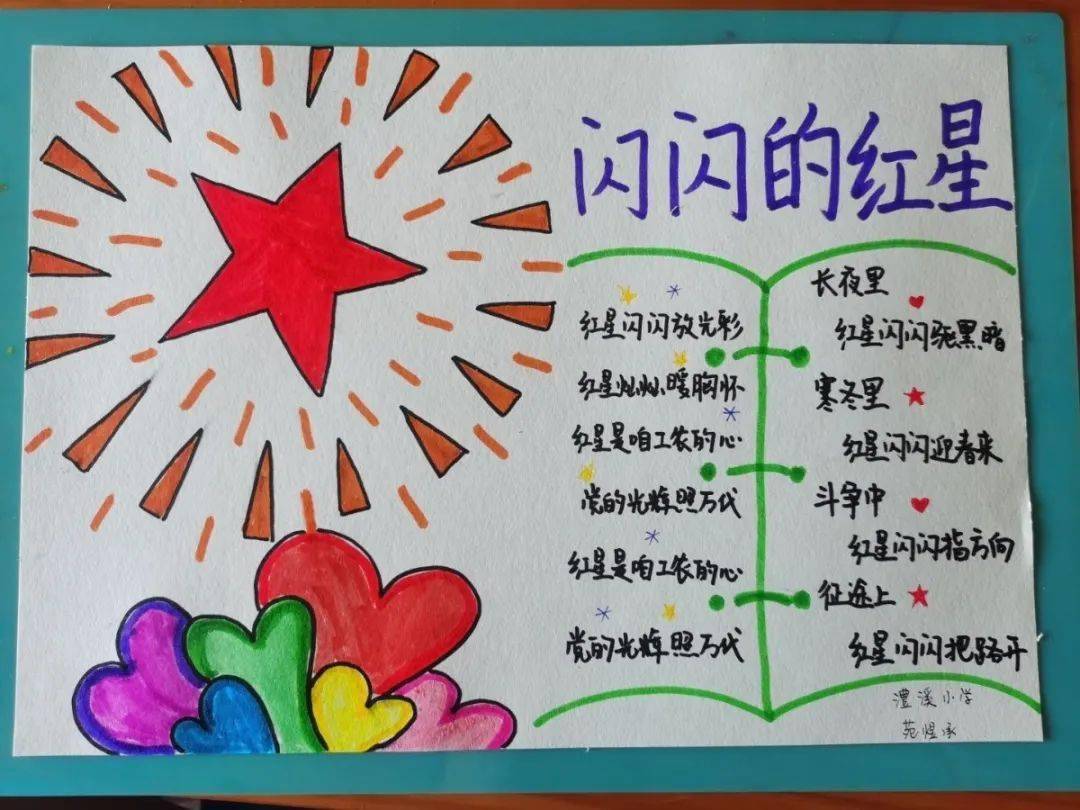 闪闪的红星
红星闪闪放光彩
红星灿灿暖胸怀
红星是咱工农的心
党的光辉照万代
红星是咱工农的心
党的光辉照万代
长夜里
红星闪闪驱黑暗
寒冬里
红星闪闪迎春来
斗争中
红星闪闪指方向
征途上
红星闪闪把路开
澧溪小学
苑煜承